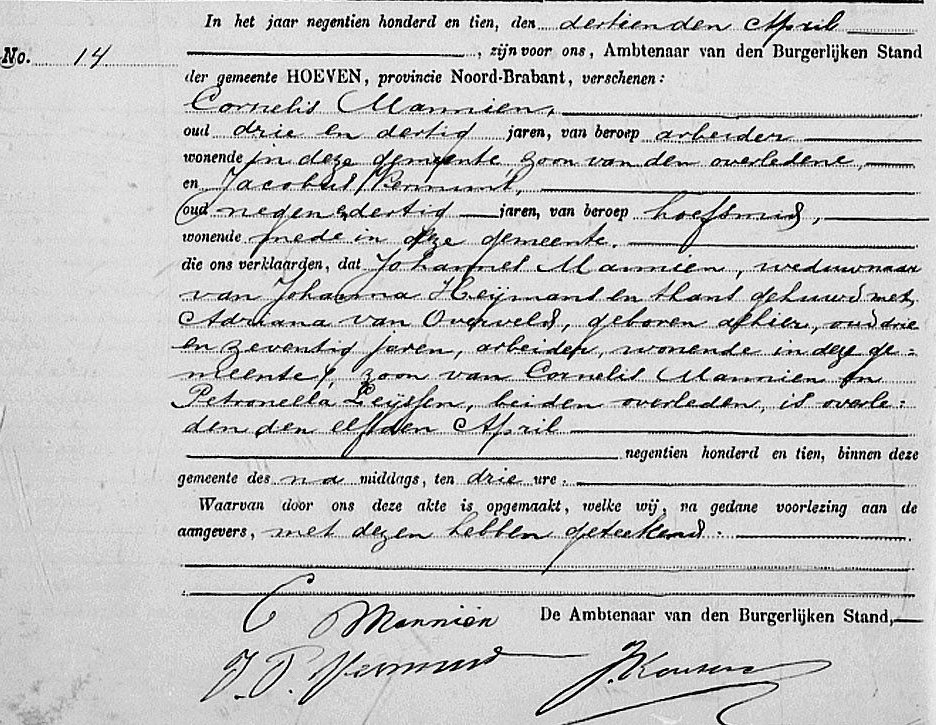 In het jaar negentien honderd en tien, den dertienden April
No. 14
, zijn voor ons, Ambtenaar van den Burgerlijken Stand
der gemeente HOEVEN, provincie Noord-Brabant, verschenen:
Cornelis Mannien,
oud drie en dertig jaren, van beroep arbeider
wonende in deze gemeente zoon van den overledene,
en Jacobus
oud negen & dertig jaren, van beroep hoefsmid,
wonende mede in deze gemeente.
die ons verklaarden, dat Johannes Mannien, weduwnaar
van Johanna Heijmans en thans gehuwd met
Adriana van Overveld, geboren alhier, oud drie
en zeventig jaren, arbeider, wonende in deze ge=
meente, zoon van Cornelis Mannien en
Petronella Leijssen, beiden overleden, is overle=
den den elfden April
negentien honderd en tien, binnen deze
gemeente des na middags, ten drie ure.
Waarvan door ons deze akte is opgemaakt, welke wij, na gedane voorlezing aan de
aangevers, met dezen hebben geteekend.
C Manniën De Ambtenaar van den Burgerlijken Stand,
J. P.